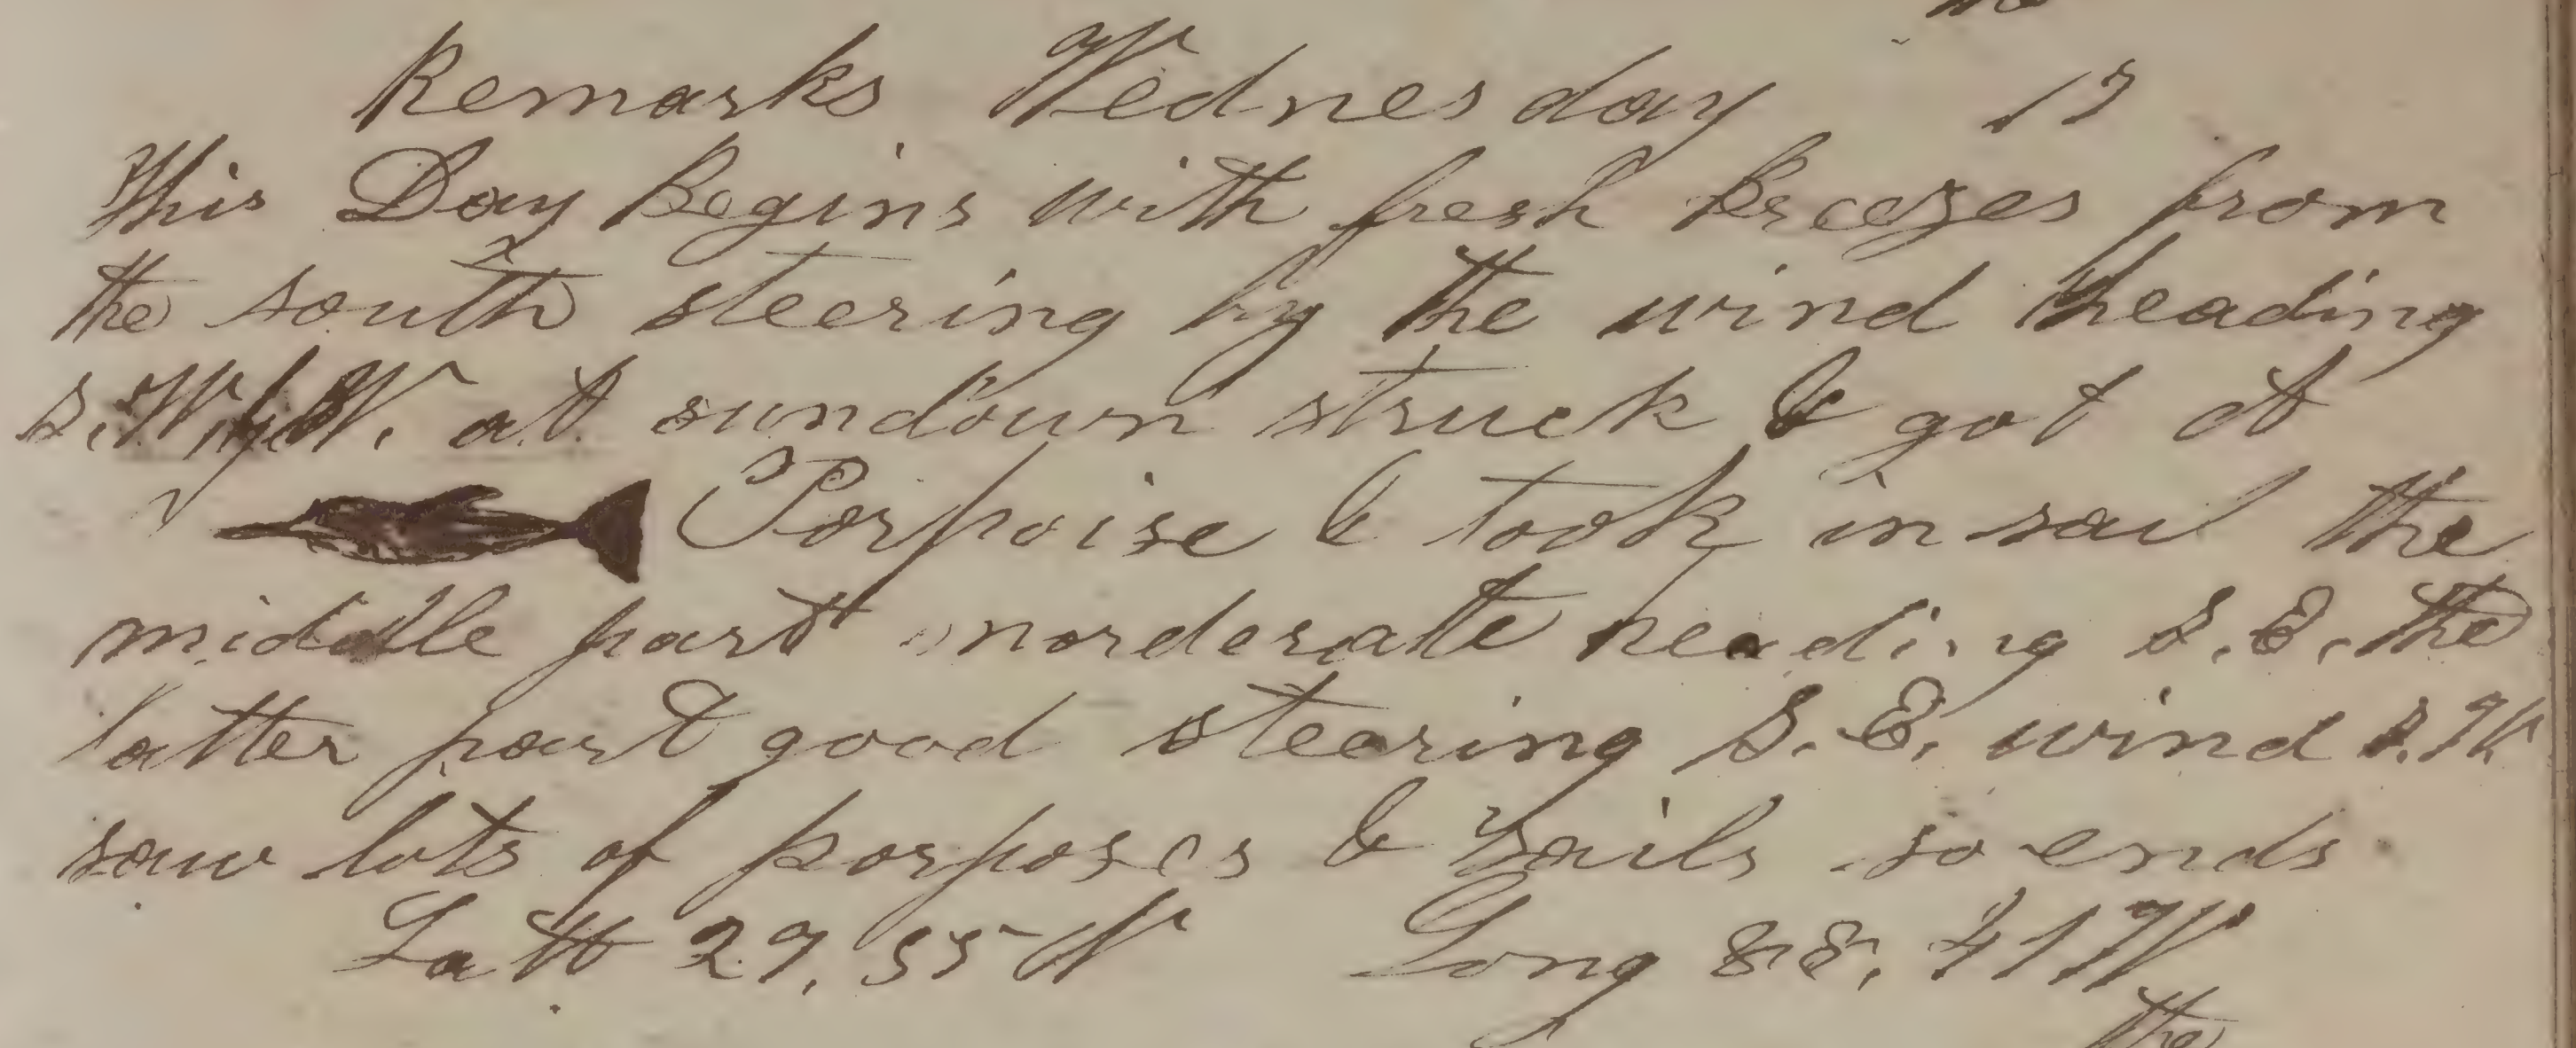 Remarks Wednesday 17
This Day Begins with fresh Breezes from
the south steering by the wind heading
S.W. by W. at sundown struck & got it
Porpoise & took in sail the
middle part morderatte heading S.E. the
latter part good stearing S.E. wind S.W.
saw lots of porposes & Sails so ends
Latt 29,55 N Long 88,41 W
the